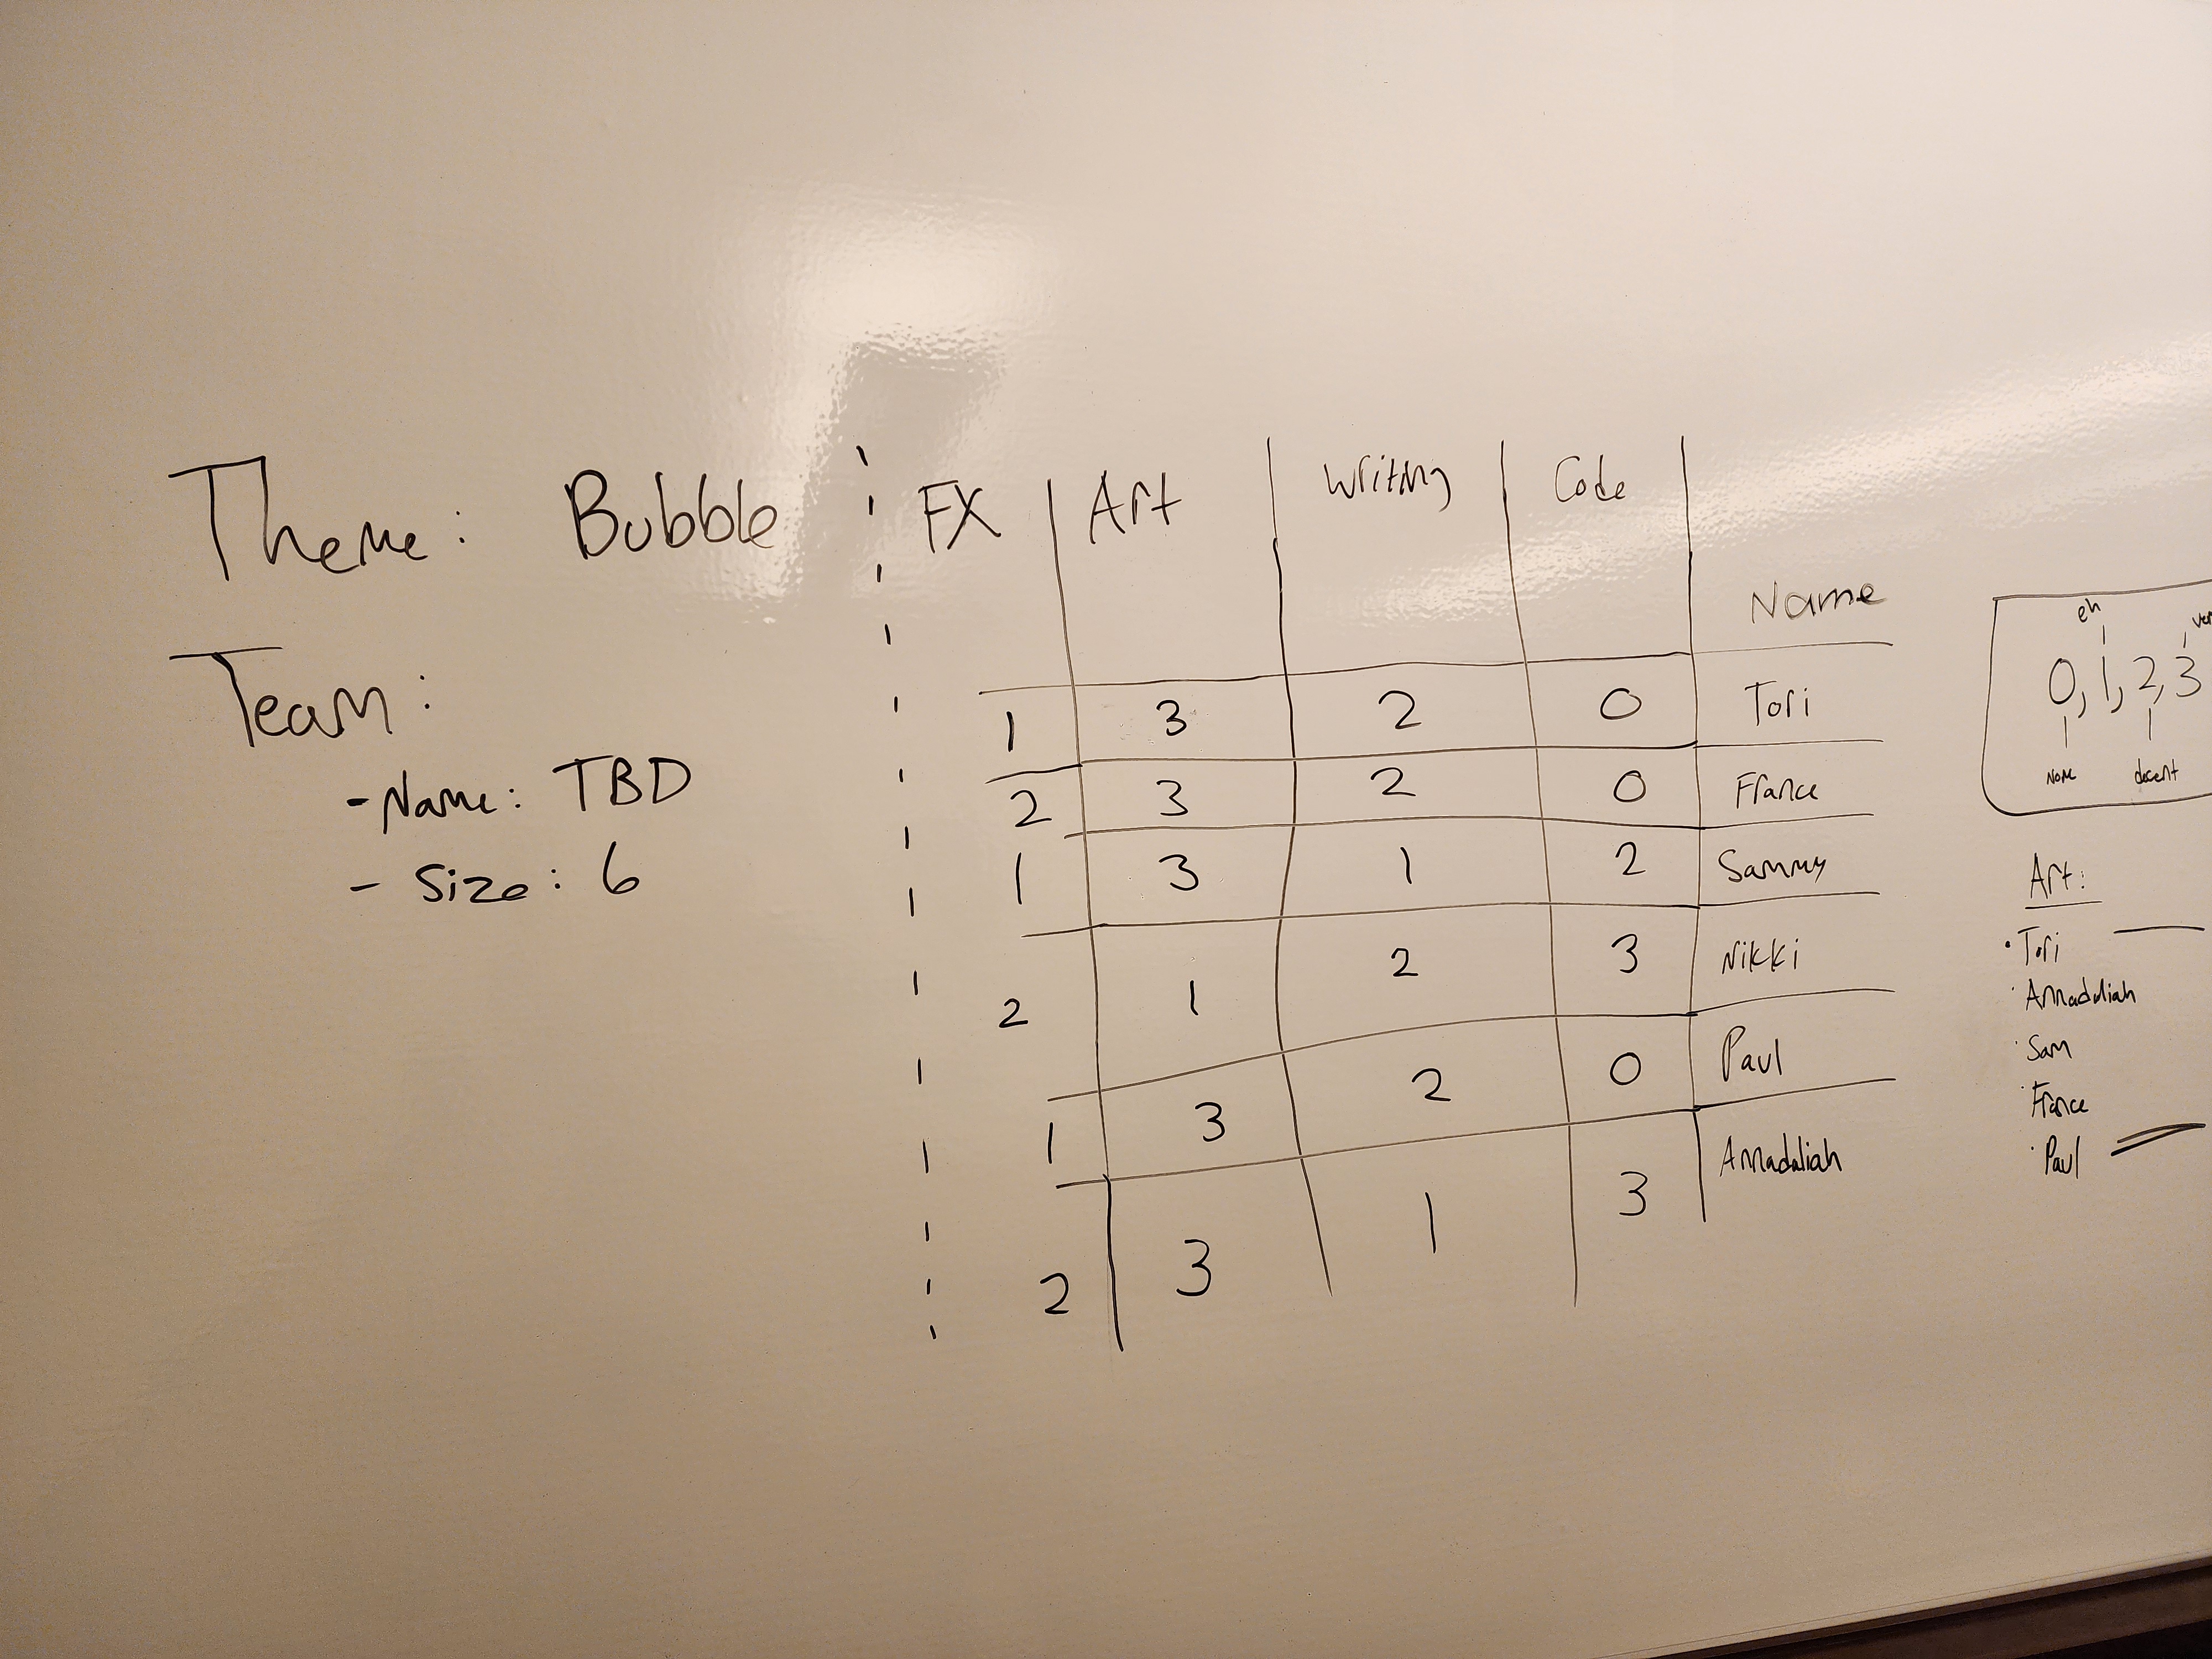 Theme: Bubble
Team:
- Name: TBD
- Size: 6
FX Art Writing Code Name
1 3 2 0 Tori
2 3 2 0 France
1 3 1 2 Sammy
2 1 2 3 Nikki
1 3 2 0 Paul
2 3 1 3 Annadaliah
eh
0, 1, 2, 3
None decent
Art:
· Tori
· Annadaliah
· Sam
· France
· Paul